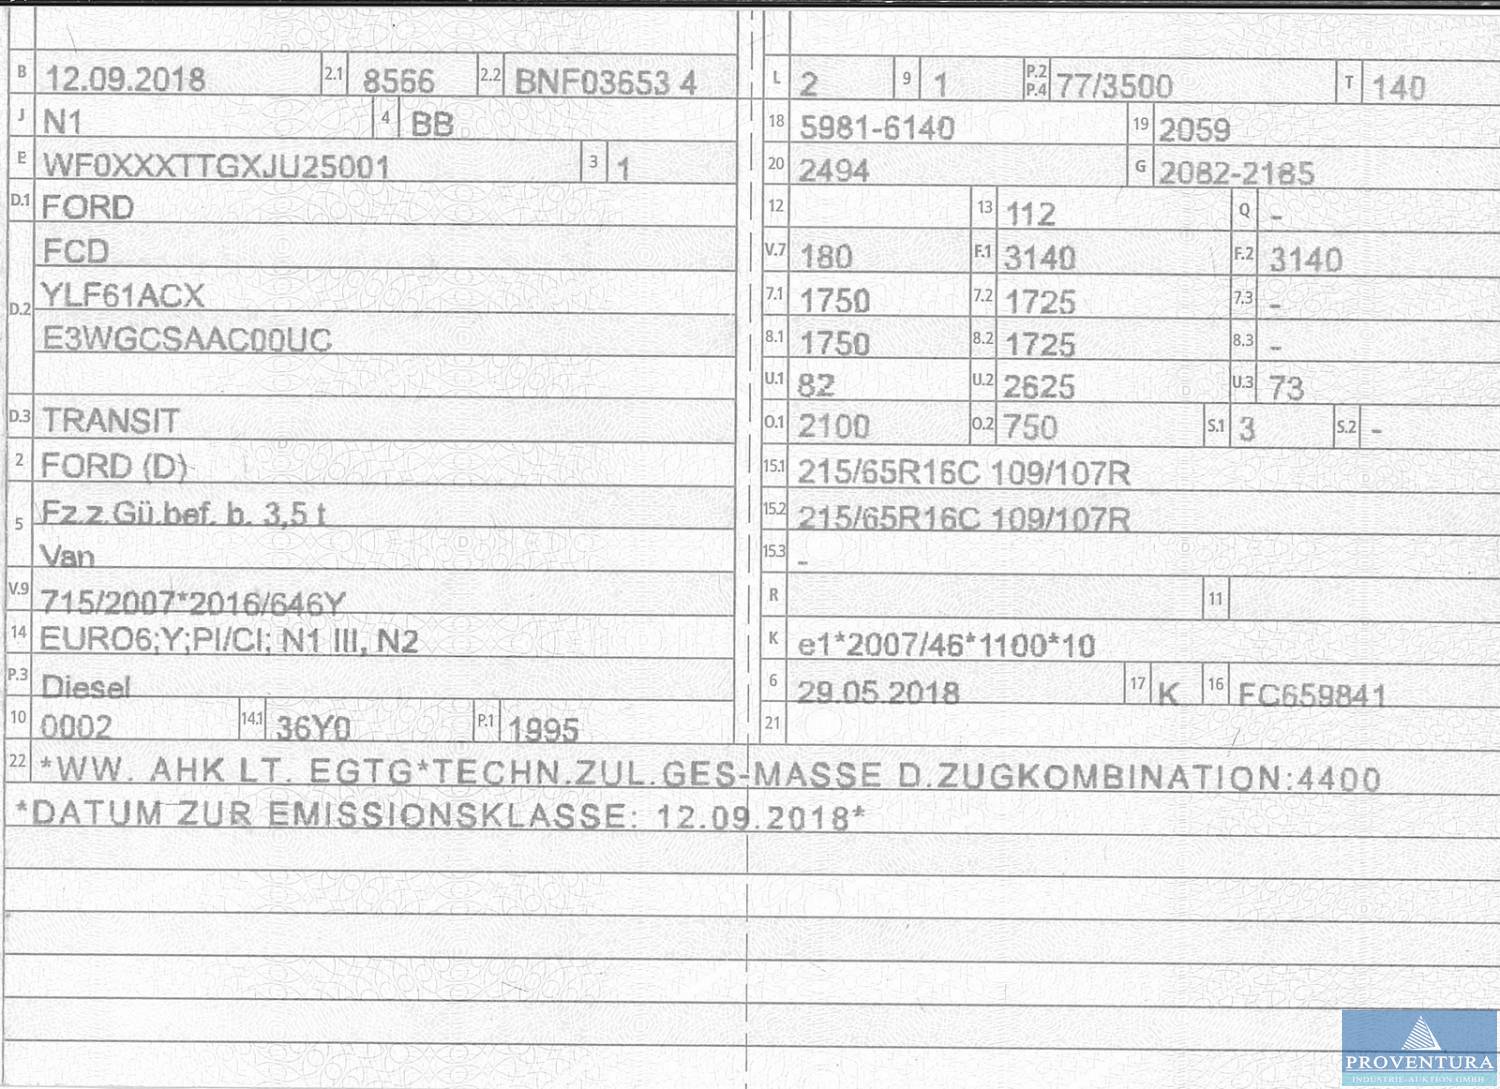 B 12.09.2018 2.1 8566 2.2 BNF03653 4
J N1 4 BB
E WF0XXXTTGXJU25001 3 1
D.1 FORD
FCD
D.2 YLF61ACX
E3WGCSAAC00UC
D.3 TRANSIT
2 FORD (D)
5 Fz.z.Gü.bef. b. 3,5 t
Van
V.9 715/2007*2016/646Y
14 EURO6;Y;PI/CI; N1 III, N2
P.3 Diesel
10 0002 14.1 36Y0 P.1 1995
L 2 9 1 P.2 P.4 77/3500 T 140
18 5981-6140 19 2059
20 2494 G 2082-2185
12 13 112 Q -
V.7 180 F.1 3140 F.2 3140
7.1 1750 7.2 1725 7.3 -
8.1 1750 8.2 1725 8.3 -
U.1 82 U.2 2625 U.3 73
O.1 2100 O.2 750 S.1 3 S.2 -
15.1 215/65R16C 109/107R
15.2 215/65R16C 109/107R
15.3 -
R 11
K e1*2007/46*1100*10
6 29.05.2018 17 K 16 FC659841
21
22 *WW. AHK LT. EGTG*TECHN.ZUL.GES-MASSE D.ZUGKOMBINATION:4400
*DATUM ZUR EMISSIONSKLASSE: 12.09.2018*
PROVENTURA
INDUSTRIE-AUKTION GMBH